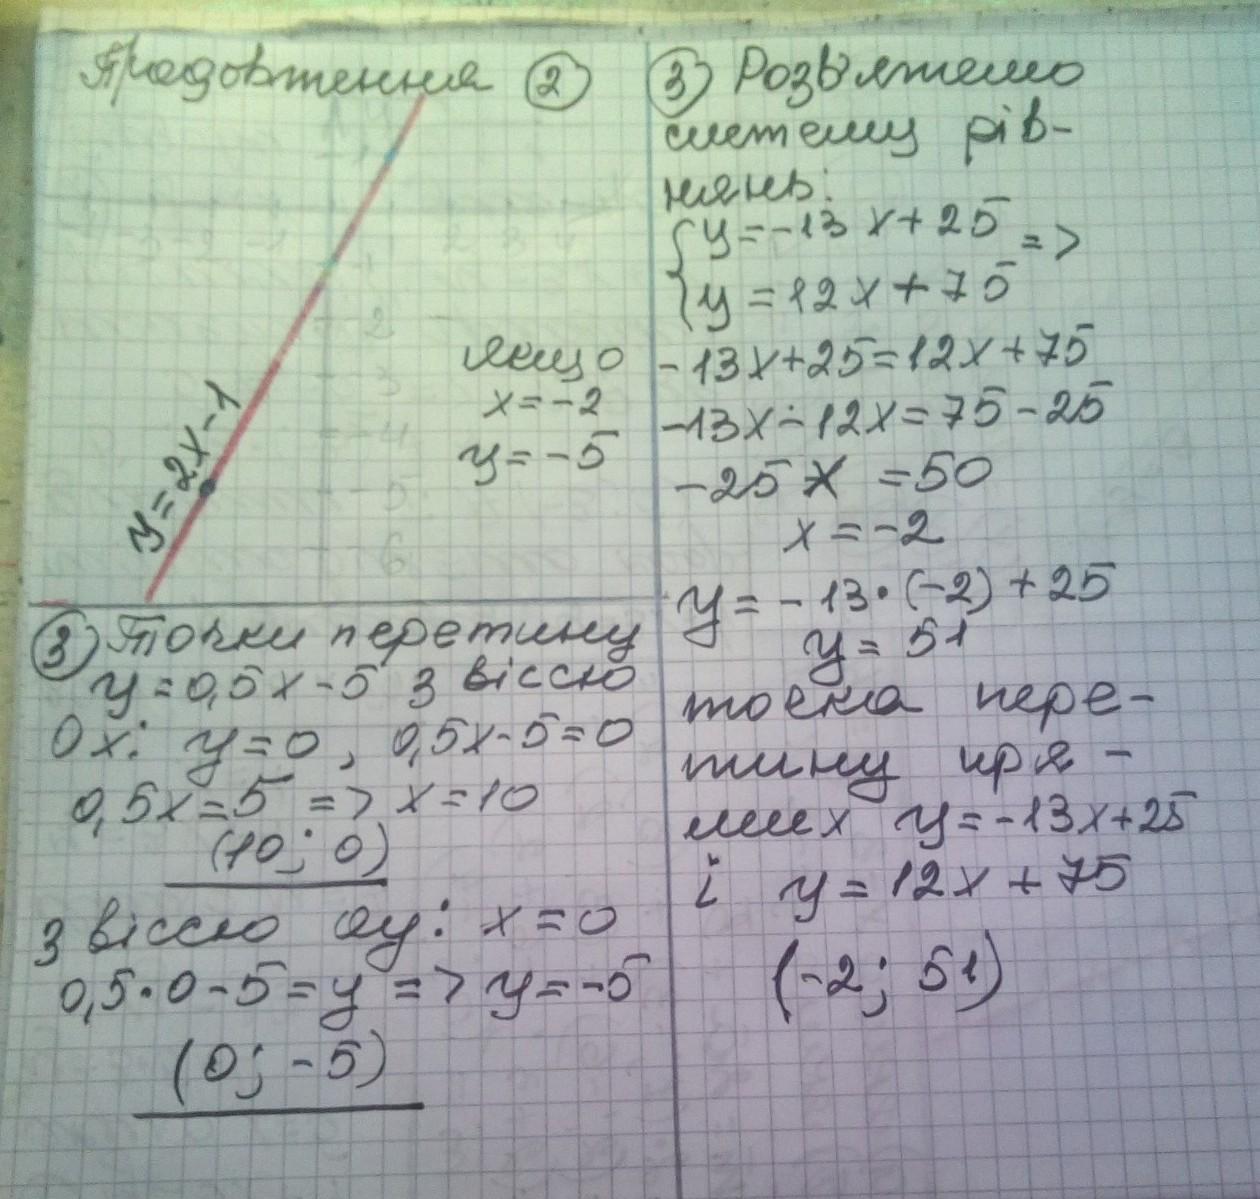 Продовження ②
y=2x-1
якщо
x=-2
y=-5
-2
-3
-4
-5
-6
③ Точки перетину
y=0,5x-5 з віссю
Ox: y=0, 0,5x-5=0
0,5x=5 => x=10
(10; 0)
З віссю oy: x=0
0,5·0-5=y => y=-5
(0; -5)
③ Розв'яжемо
систему рів-
нянь:
{y=-13x+25 =>
{y=12x+75
-13x+25=12x+75
-13x-12x=75-25
-25x =50
x=-2
y=-13·(-2)+25
y=51
точка пере-
тину пря-
мих y=-13x+25
і y=12x+75
(-2; 51)